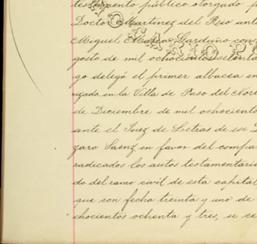 testamento público otorgado p
Doctor Martinez del Rio ante
Miguel
gosto de mil ochocientos setenta
go delegó el primer albacea en
gado en la Villa de Paso del Norte
de Diciembre de mil ochocientos
ante el Juez de Letras de ese D
zaro Saenz en favor del compa
radicados los autos testamentari
do del ramo civil de esta capital
que con fecha treinta y uno de
chocientos ochenta y tres, se se